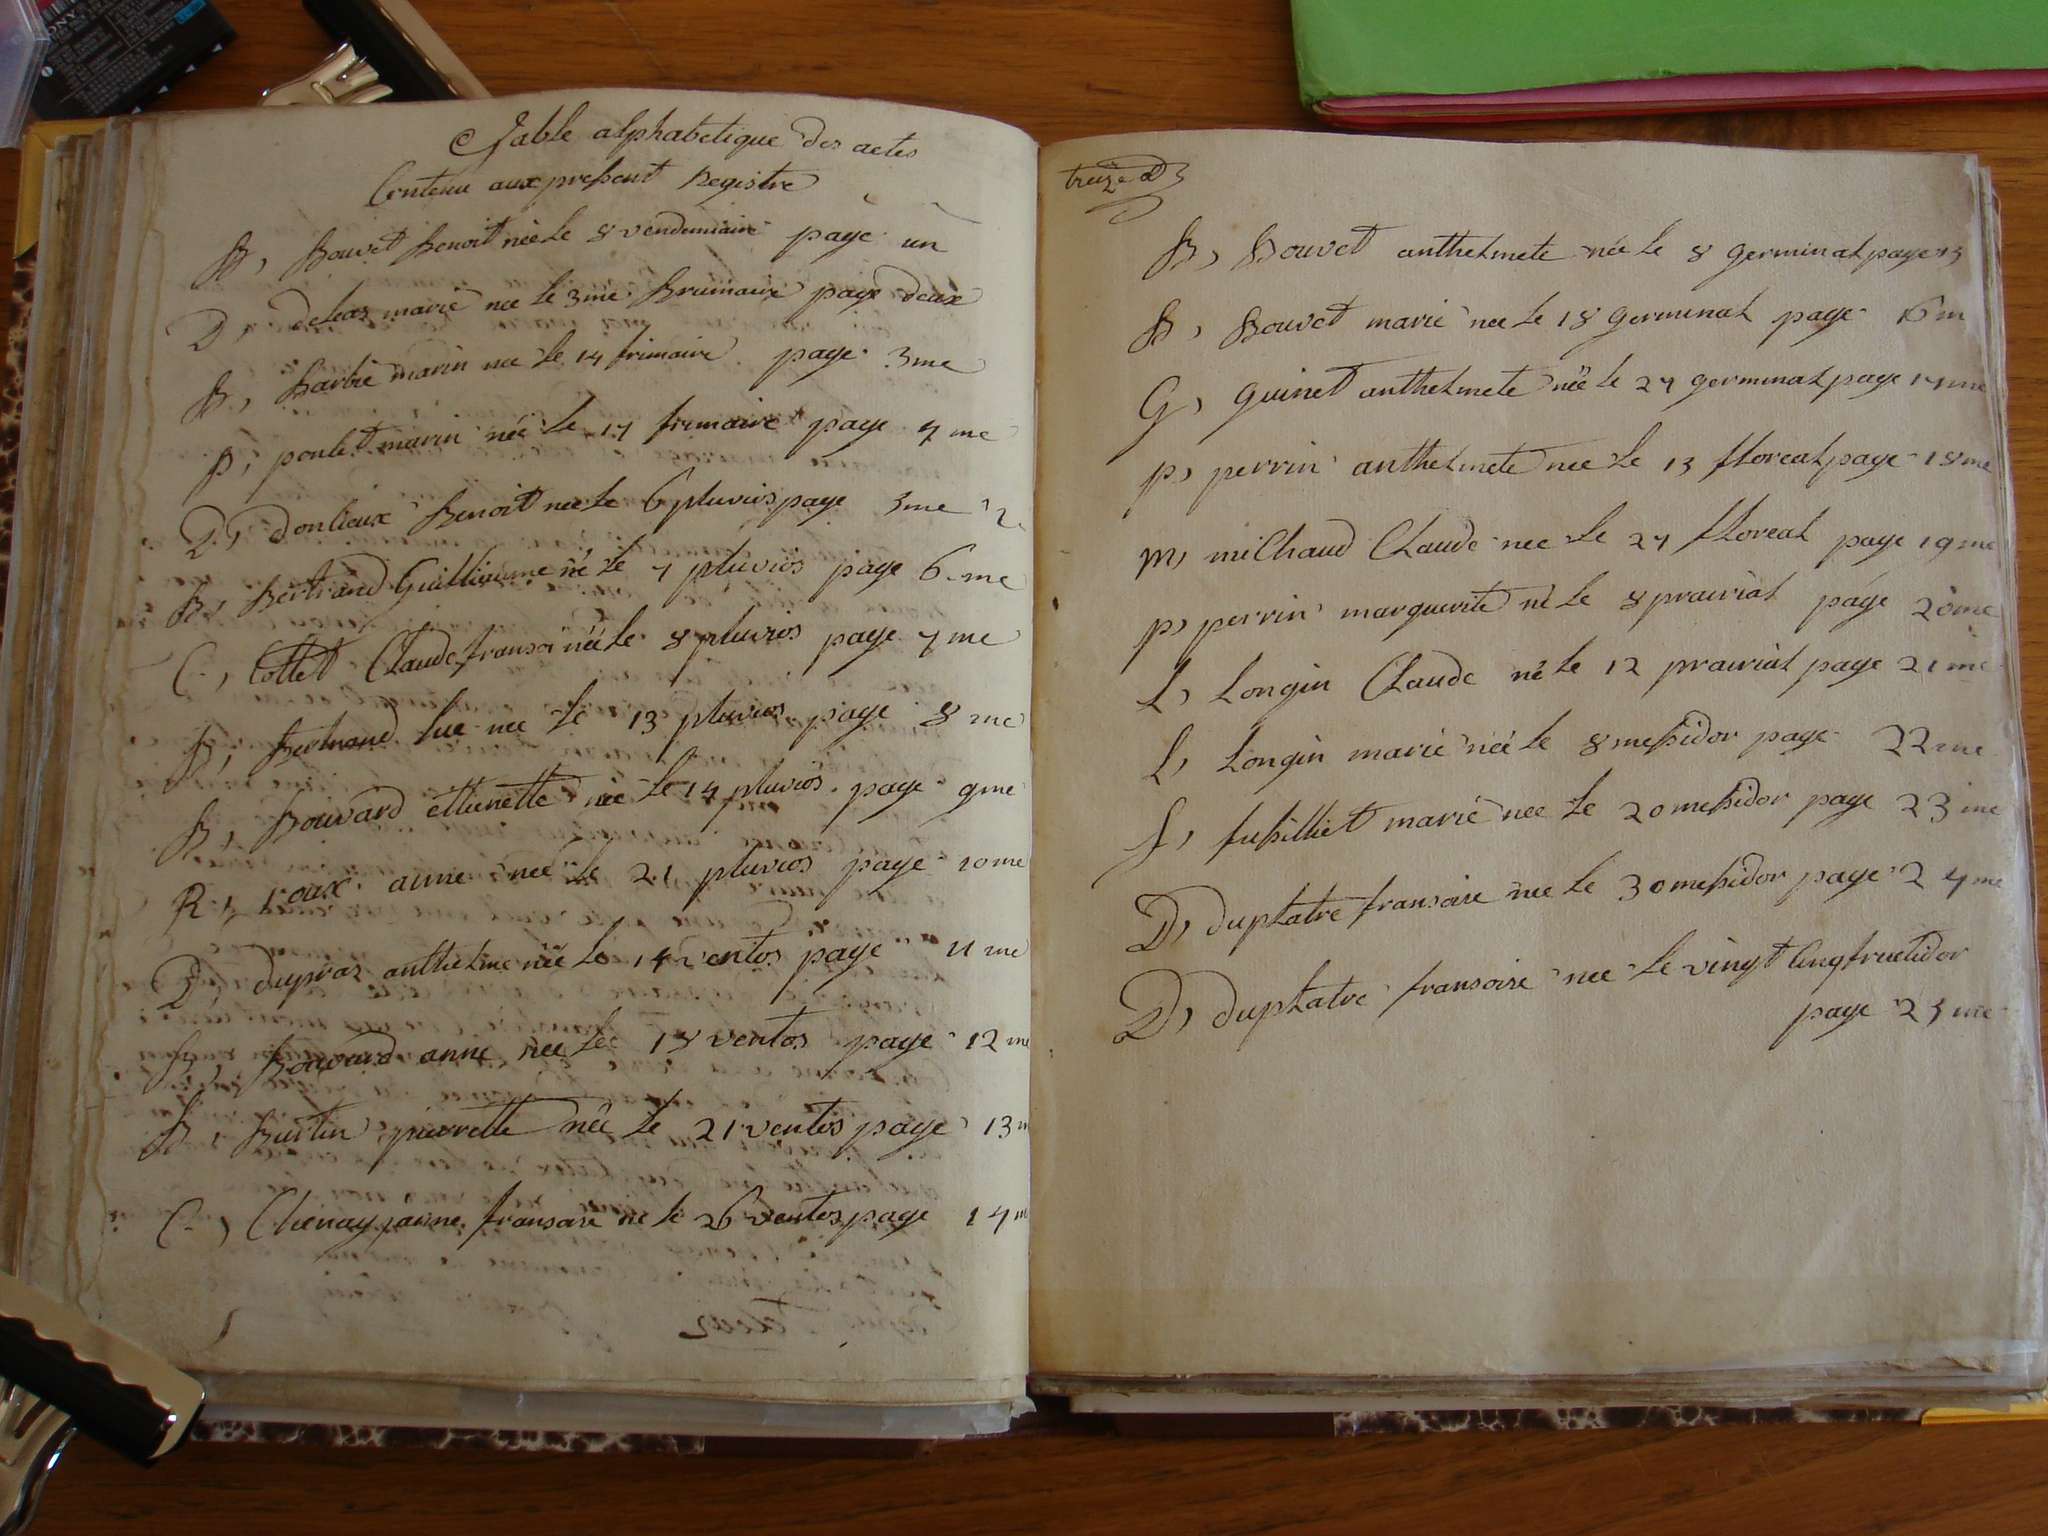 Table alphabetique des actes
Contenu aux present Registre
B, Bouvet Benoit née le 8 vendemiaire page un
D, deleaz marie nee le 3me Brumaire page deux
B, Barbié marin nee le 14 frimaire page 3me
P, ponlet marin née le 17 frimaire page 4me
D, donlieux Benoit nee le 6 pluvios page 5me
B, Bertrand Guilliaume né le 7 pluvios page 6me
C, Collet Claude fransoi née le 8 pluvios page 7me
B, Bertrand lue nee le 13 pluvios page 8me
B, Bouvard ettienette née le 14 pluvios page 9me
R, roux anne née le 21 pluvios page 10me
D, dupraz anthelme née le 14 ventos page 11me
B, Bouvard anne née le 18 ventos page 12me
B, Burtin pierrette née le 21 ventos page 13m
C, Chenay janne fransoise né le 26 ventos page 14m
treize
B, Bouvet anthelmete née le 8 germinal page 15
B, Bouvet marie nee le 18 germinal page 16m
G, guinet anthelmete née le 27 germinal page 17me
p, perrin anthelmete nee le 13 floreal page 18me
m, michaud Claude nee le 27 floreal page 19me
p, perrin marguerite né le 8 prairial page 20me
L, Longin Claude né le 12 prairial page 21me
L, Longin marie née le 8 messidor page 22me
f, fusilliet marie nee le 20 messidor page 23me
D, duplatre fransoise nee le 30 messidor page 24me
D, duplatre fransoise nee le vingt Cinq fructidor
page 25me